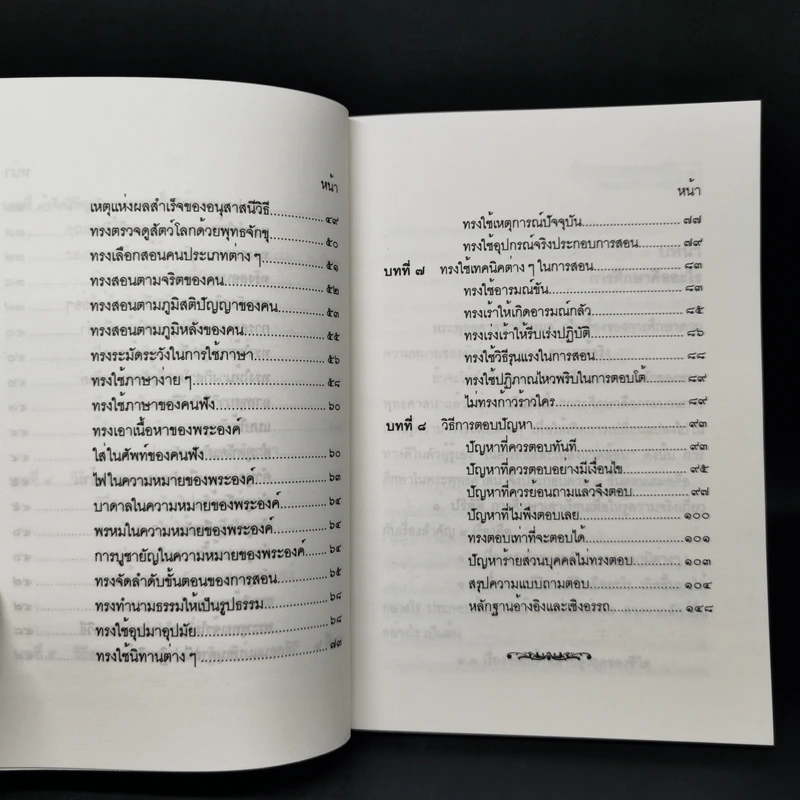 หน้า
เหตุแห่งผลสำเร็จของอนุสาสนีวิธี................๔๙
ทรงตรวจดูสัตว์โลกด้วยพุทธจักขุ................๕๐
ทรงเลือกสอนคนประเภทต่าง ๆ................๕๑
ทรงสอนตามจริตของคน................๕๒
ทรงสอนตามภูมิสติปัญญาของคน................๕๓
ทรงสอนตามภูมิหลังของคน................๕๕
ทรงระมัดระวังในการใช้ภาษา................๕๖
ทรงใช้ภาษาง่าย ๆ................๕๘
ทรงใช้ภาษาของคนฟัง................๖๐
ทรงเอาเนื้อหาของพระองค์
ใส่ในศัพท์ของคนฟัง................๖๐
ไฟในความหมายของพระองค์................๖๓
บาดาลในความหมายของพระองค์................๖๔
พรหมในความหมายของพระองค์................๖๔
การบูชายัญในความหมายของพระองค์................๖๔
ทรงจัดลำดับขั้นตอนของการสอน................๖๕
ทรงทำนามธรรมให้เป็นรูปธรรม................๖๘
ทรงใช้อุปมาอุปมัย................๖๘
ทรงใช้นิทานต่าง ๆ................๗๓
หน้า
ทรงใช้เหตุการณ์ปัจจุบัน................๗๗
ทรงใช้อุปกรณ์จริงประกอบการสอน................๗๙
บทที่ ๗ ทรงใช้เทคนิคต่าง ๆ ในการสอน................๘๓
ทรงใช้อารมณ์ขัน................๘๓
ทรงเร้าให้เกิดอารมณ์กลัว................๘๕
ทรงเร่งเร้าให้รีบเร่งปฏิบัติ................๘๖
ทรงใช้วิธีรุนแรงในการสอน................๘๘
ทรงใช้ปฏิภาณไหวพริบในการตอบโต้................๘๙
ไม่ทรงก้าวร้าวใคร................๘๙
บทที่ ๘ วิธีการตอบปัญหา................๙๓
ปัญหาที่ควรตอบทันที................๙๓
ปัญหาที่ควรตอบอย่างมีเงื่อนไข................๙๕
ปัญหาที่ควรย้อนถามแล้วจึงตอบ................๙๗
ปัญหาที่ไม่พึงตอบเลย................๑๐๐
ทรงตอบเท่าที่จะตอบได้................๑๐๑
ปัญหาร้ายส่วนบุคคลไม่ทรงตอบ................๑๐๓
สรุปความแบบถามตอบ................๑๐๔
หลักฐานอ้างอิงและเชิงอรรถ................๑๔๘